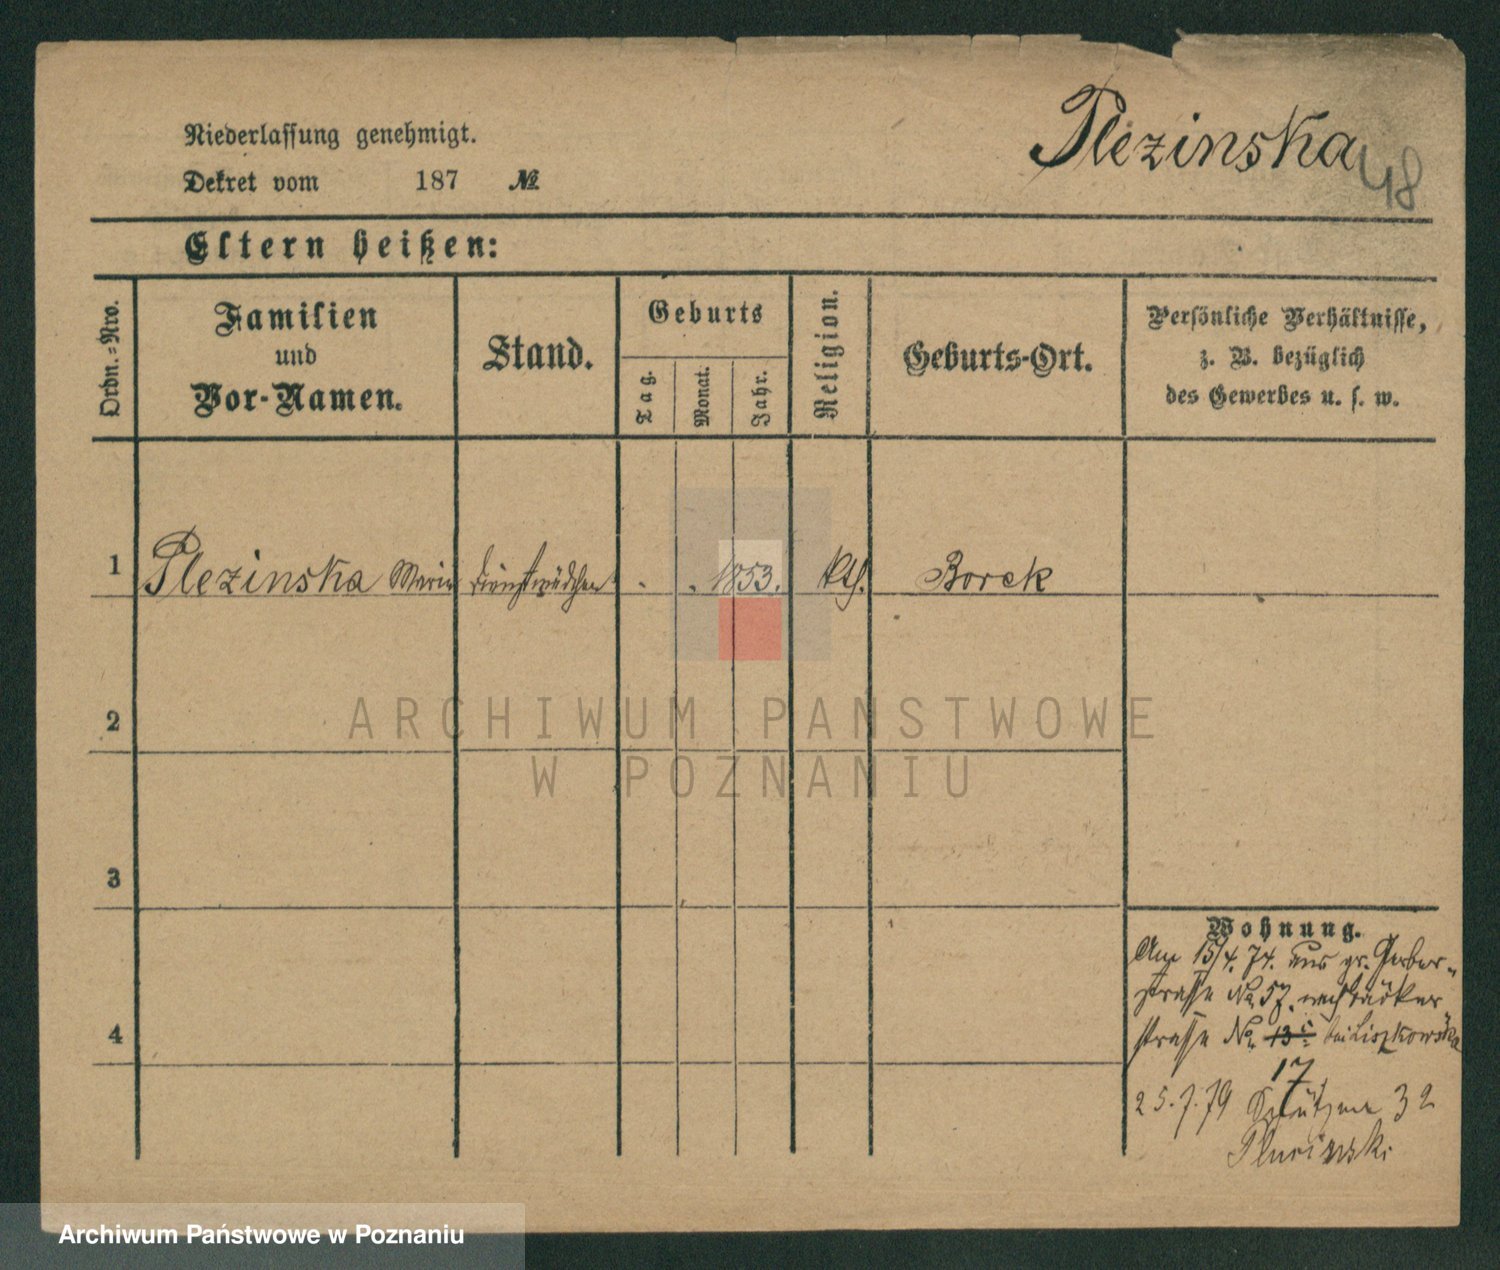 Plezinska
48
Niederlassung genehmigt.
Dekret vom 187 №
Eltern heißen:
Ordn.-Nro.
Familien
und
Vor-Namen.
Stand.
Geburts
Tag.
Monat.
Jahr.
Religion.
Geburts-Ort.
Persönliche Verhältnisse,
z. B. bezüglich
des Gewerbes u. s. w.
1 Plezinska Marie Dienstmädchen . . 1853. kth. Borek
2
3
4
Wohnung.
Am 15/4. 74. aus gr. Gerber-
strasse No 57. nach Bäcker
strasse No 13c bei Liszkowska
17
25.7.79 Schützen 32
ARCHIWUM PAŃSTWOWE
W POZNANIU
Archiwum Państwowe w Poznaniu